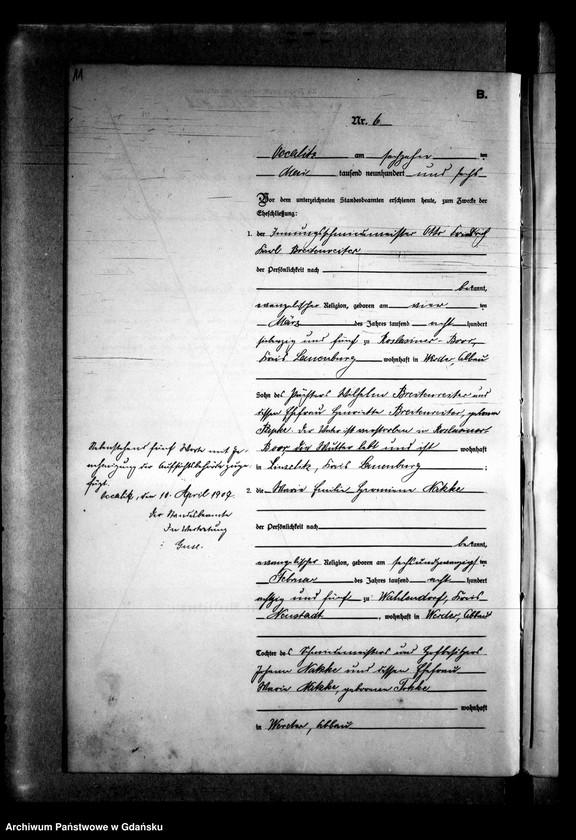 11
B.
Nr. 6
Occalitz am sechzehn ten
Mai tausend neunhundert und sechs
Vor dem unterzeichneten Standesbeamten erschienen heute, zum Zwecke der
Eheschließung:
1. der Otto Friedrich
Karl Breitenreiter
der Persönlichkeit nach
bekannt,
evangelischer Religion, geboren am vier ten
März des Jahres tausend acht hundert
siebenzig und fünf zu
Kreis Lauenburg wohnhaft in Werder, Abbau
Sohn des Wilhelm Breitenreiter und
dessen Ehefrau Henriette Breitenreiter, geborene
der Vater ist verstorben in
die Mutter lebt und ist wohnhaft
in Kreis Lauenburg ;
Nebenstehende fünf Worte mit Ge-
nehmigung der Aufsichtsbehörde zuge-
fügt.
Occalitz, den 10. April 1907.
Der Standesbeamte
In Vertretung
2. die Maria Emilie Hermine
der Persönlichkeit nach
bekannt,
evangelischer Religion, geboren am sechsundzwanzig ten
Februar des Jahres tausend acht hundert
achtzig und fünf zu Wahlendorf, Kreis
Neustadt , wohnhaft in Werder, Abbau
Tochter des und Hofbesitzers
Johann und dessen Ehefrau
Maria geborenen
wohnhaft
in Werder, Abbau
Archiwum Państwowe w Gdańsku